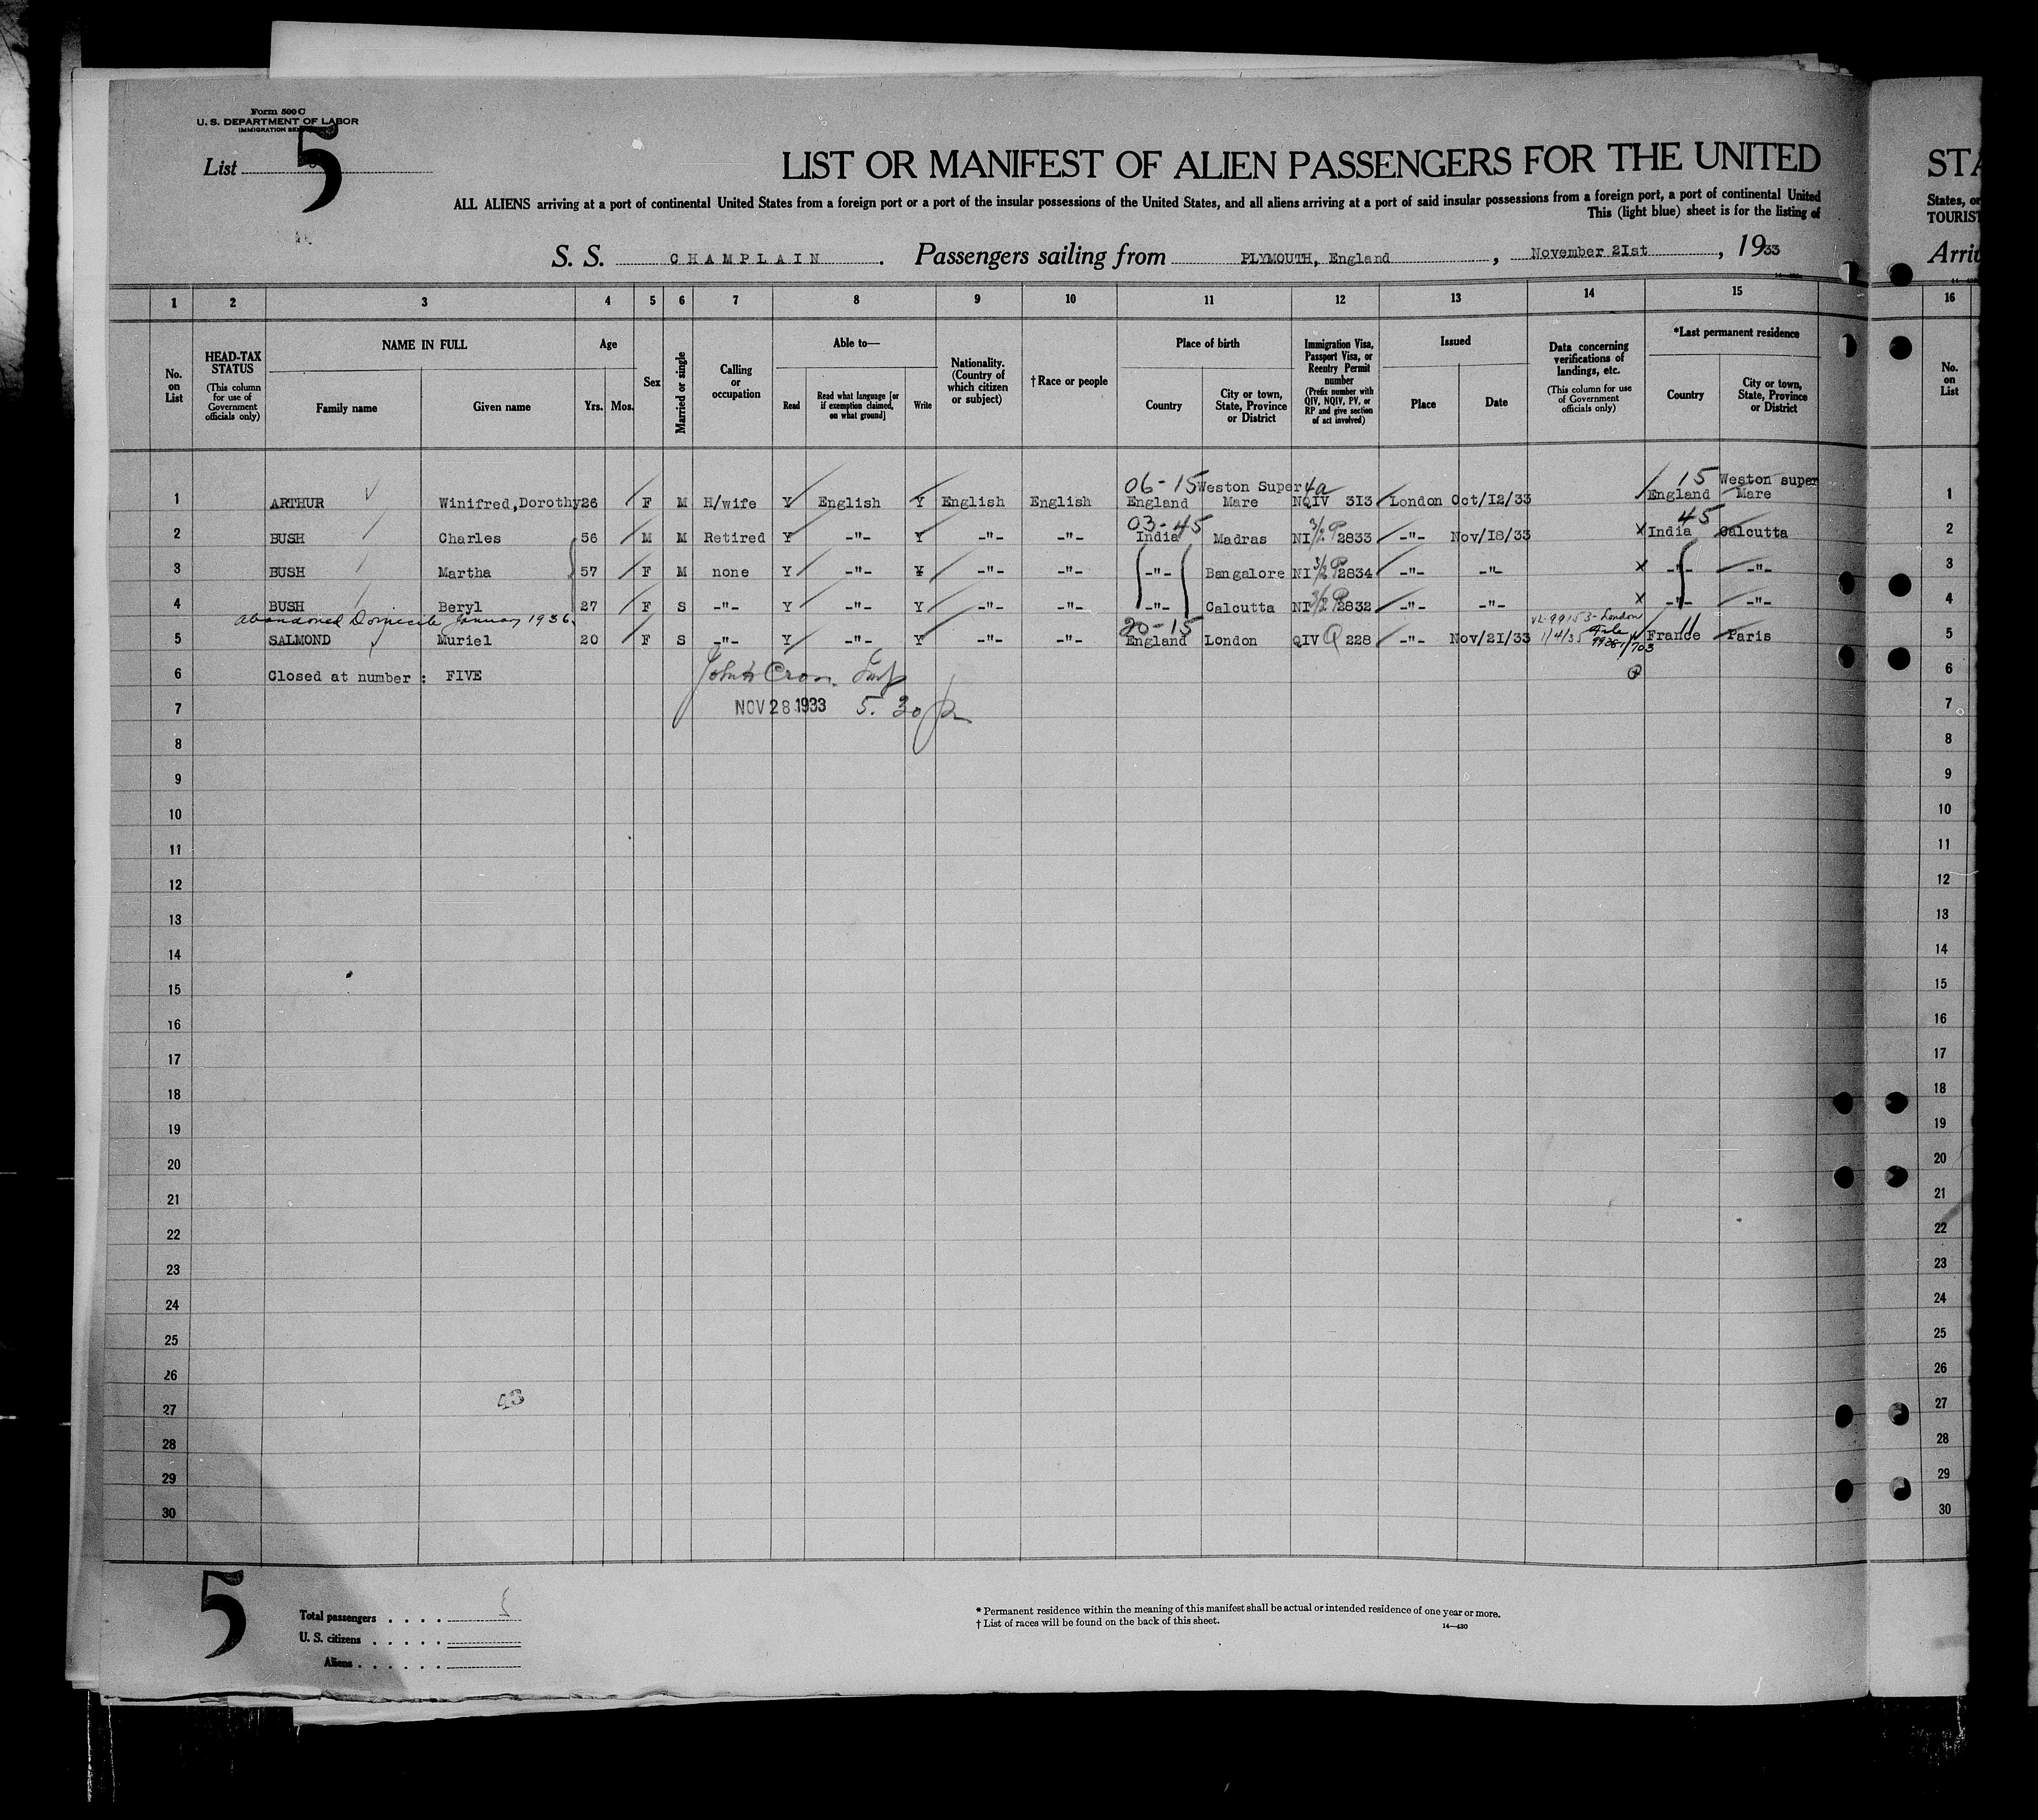 Form 500 C
U. S. DEPARTMENT OF LABOR
IMMIGRATION
List 5
LIST OR MANIFEST OF ALIEN PASSENGERS FOR THE UNITED
STA
ALL ALIENS arriving at a port of continental United States from a foreign port or a port of the insular possessions of the United States, and all aliens arriving at a port of said insular possessions from a foreign port, a port of continental United
States, or
This (light blue) sheet is for the listing of
TOURIST
S. S. CHAMPLAIN . Passengers sailing from PLYMOUTH, England , November 2Ist , 1933
Arriv
1 2 3 4 5 6 7 8 9 10 11 12 13 14 15 16
No. on List
HEAD-TAX STATUS
(This column for use of Government officials only)
NAME IN FULL
Family name
Given name
Age
Yrs. Mos.
Sex
Married or single
Calling or occupation
Able to—
Read
Read what language [or if exemption claimed, on what ground]
Write
Nationality. (Country of which citizen or subject)
† Race or people
Place of birth
Country
City or town, State, Province or District
Immigration Visa, Passport Visa, or Reentry Permit number
(Prefix number with QIV, NQIV, PV, or RP and give section of act involved)
Issued
Place
Date
Data concerning verifications of landings, etc.
(This column for use of Government officials only)
*Last permanent residence
Country
City or town, State, Province or District
No. on List
06-15 Weston Super 4a 15 Weston super
1 ARTHUR Winifred,Dorothy 26 F M H/wife Y English Y English English England Mare NQIV 313 London Oct/I2/33 England Mare 1
03-45 3/2 P 45
2 BUSH Charles 56 M M Retired Y -"- Y -"- -"- India Madras NI 2833 -"- Nov/I8/33 X India Calcutta 2
3 BUSH Martha 57 F M none Y -"- Y -"- -"- -"- Bangalore NI 3/2 P 2834 -"- -"- X -"- -"- 3
4 BUSH Beryl 27 F S -"- Y -"- Y -"- -"- -"- Calcutta NI 3/2 P 2832 -"- -"- X -"- -"- 4
abandoned Domicile January 1936. 20-15 VL-99153-London 11
5 SALMOND Muriel 20 F S -"- Y -"- Y -"- -"- England London QIV Q 228 -"- Nov/2I/33 1/4/35 France Paris 5
6 Closed at number : FIVE 6
7 NOV 28 1933 5. 30 7
8 8
9 9
10 10
11 11
12 12
13 13
14 14
15 15
16 16
17 17
18 18
19 19
20 20
21 21
22 22
23 23
24 24
25 25
26 26
43
27 27
28 28
29 29
30 30
5
Total passengers . . . . 5
U. S. citizens . . . . .
Aliens . . . . . .
* Permanent residence within the meaning of this manifest shall be actual or intended residence of one year or more.
† List of races will be found on the back of this sheet.
14—430